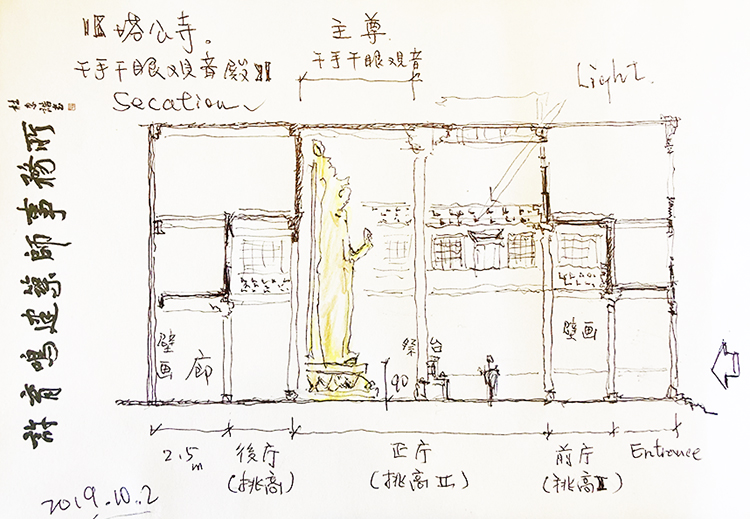 塔公寺。
千手千眼观音殿
Secation
主尊
千手千眼观音
Light.
許育鳴建築師事務所
壁画
廊
祭台
90
壁画
2.5m
後庁
(挑高)
正庁
(挑高II)
前庁
(挑高I)
Entrance
2019.10.2